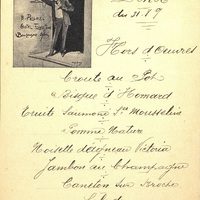 Hors d'Œuvres
Croute au Pot
Bisque d'Homard
Truite Saumoné Sce Mousseline
Pomme Nature
Noisette d'agneau Victoria
Jambon au Champagne
Caneton sur Broche